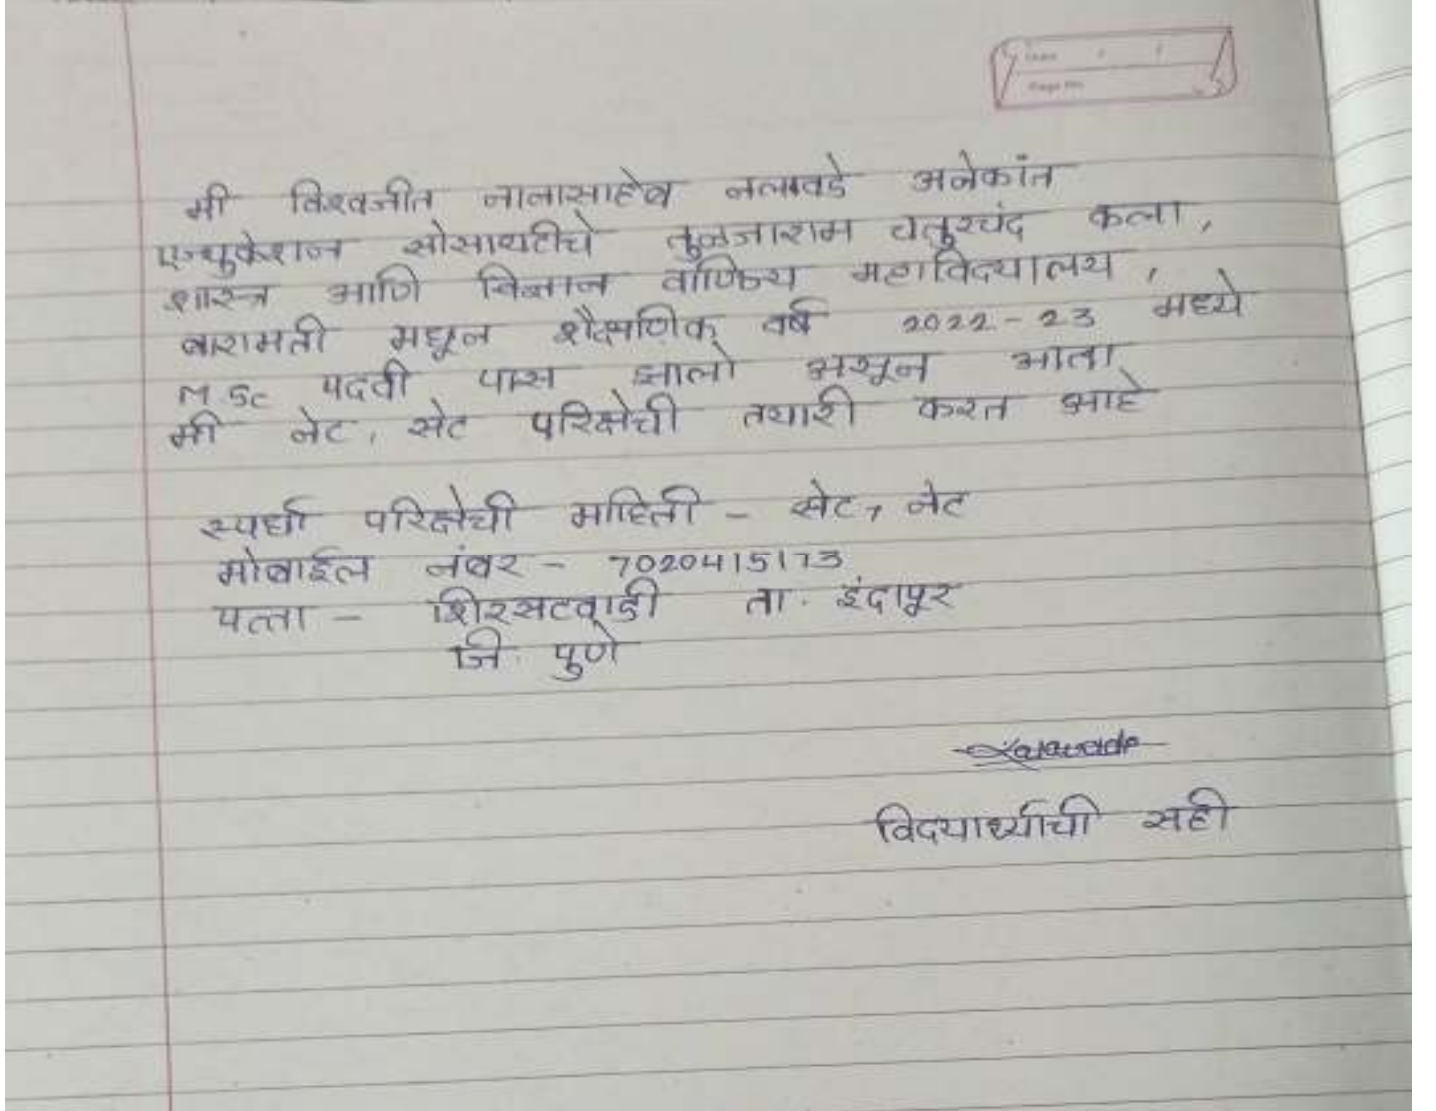 Date / /
Page No.
मी विश्वजीत नानासाहेब नलावडे अनेकांत
एज्युकेशन सोसायटीचे तुळजाराम चतुरचंद कला,
शास्त्र आणि विज्ञान वाणिज्य महाविद्यालय,
बारामती मधून शैक्षणिक वर्ष 2022-23 मध्ये
M.Sc पदवी पास झालो असून आता
मी नेट, सेट परिक्षेची तयारी करत आहे
स्पर्धा परिक्षेची माहिती - सेट, नेट
मोबाईल नंबर - 7020415173
पत्ता - शिरसटवाडी ता. इंदापूर
जि. पुणे
विद्यार्थ्याची सही